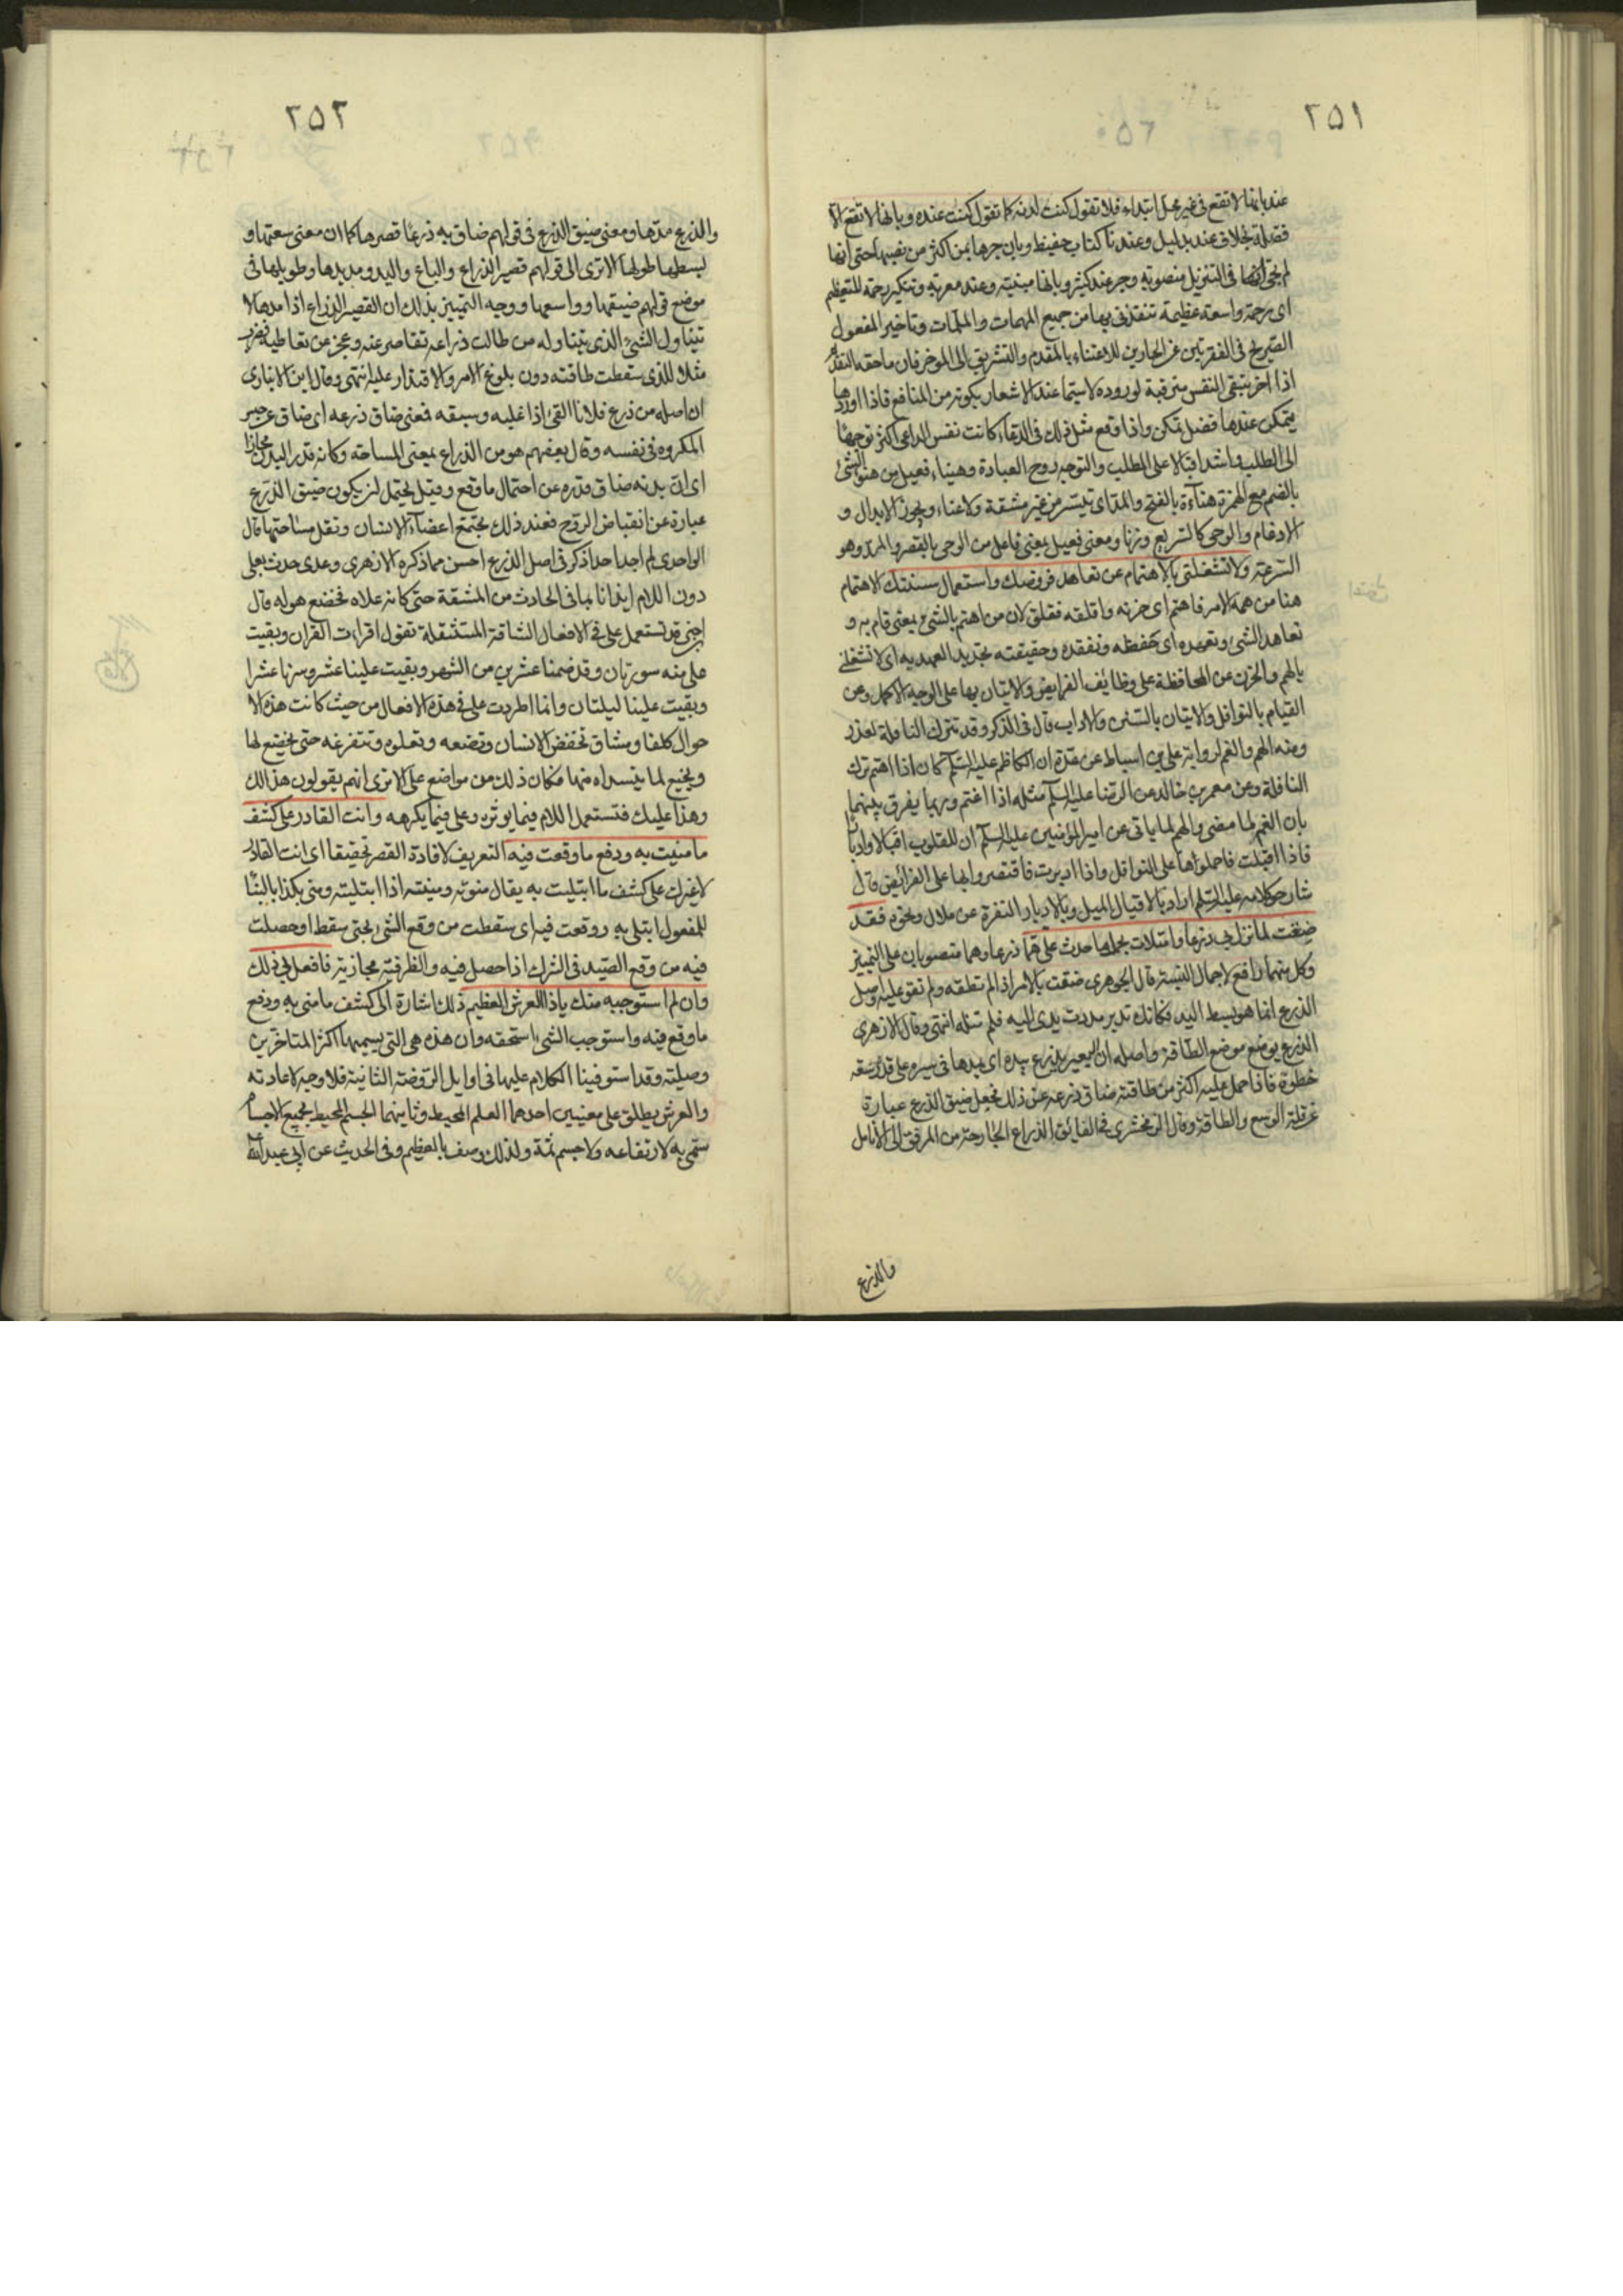 ٢٥١
عند بانها لا تقع فى غير محل ابتداء فلا تقول كنت لدنه كما تقول كنت عنده وبانها لا تقع الا
فضلة بخلاف عند بدليل وعندنا كتاب حفيظ وبان جرها بمن اكثر من نصبها حتى انها
لم تجئ فى التنزيل منصوبة وجر عند كثير وبانها مبنية وعند معربة وتنكير رحمة للتعظيم
اى رحمة واسعة عظيمة تنقذنى بها من جميع المهمات والملمات وتاخير المفعول
الصريح فى الفقرتين عن الجارين للاعتناء بالمقدم والتشويق الى الموخر فان ما حقه التقديم
اذا اخر تبقى النفس مترقبة لوروده لا سيما عند الاشعار بكونه من المنافع فاذا اوردها
يتمكن عندها فضل تمكن واذا وقع مثل ذلك فى الدعاء كانت نفس الداعى اكثر توجها
الى الطلب واشد اقبالا على المطلب والتوجه روح العبادة وهنيئا فعيل من هنؤ الشئ
بالضم مع الهمزة هناءة بالفتح والمد اى تيسر من غير مشقة ولا عناء ويجوز الابدال و
الادغام والوحى كالسريع وزنا ومعنى فعيل بمعنى فاعل من الوحى بالقصر والمد وهو
السرعة ولا تشغلنى بالاهتمام عن تعاهد فروضك واستعمال سنتك الاهتمام
هنا من همه الامر فاهتم اى حزنه واقلقه فقلق لان من اهتم بالشئ بمعنى قام به و
تعاهد الشئ وتعهده اى حفظه وتفقده وحقيقته تجديد العهد به اى لا تشغلنى
بالهم والحزن عن المحافظة على وظائف الفرايض والاتيان بها على الوجه الاكمل وعن
القيام بالنوافل والاتيان بالسنن والاداب قال فى الذكر وقد تترك النافلة لعذر
ومنه الهم والغم لرواية على بن اسباط عن عدة ان الكاظم عليه السلم كان اذا اهتم ترك
النافلة وعن معمر بن خالد عن الرضا عليه السلم مثله اذا اغتم وربما يفرق بينهما
بان الغم لما مضى والهم لما ياتى عن امير المؤمنين عليه السلم ان للقلوب اقبالا وادبارا
فاذا اقبلت فاحملوها على النوافل واذا ادبرت فاقتصروا بها على الفرائض قال
شارحو كلامه عليه السلم اراد بالاقبال الميل وبالادبار النفرة عن ملال ونحوه فقد
ضقت لما نزل بى ذرعا وامتلات بحمل ما حدث على هما ذرعا وهما منصوبان على التمييز
وكل منهما رافع لاجمال النسبة قال الجوهرى ضقت بالامر اذا لم تطقه ولم تقو عليه واصل
الذرع انما هو بسط اليد فكانك تريد مددت يدى اليه فلم تنله انتهى وقال الازهرى
الذرع يوضع موضع الطاقة واصله ان البعير يذرع بيده اى يمدها فى سيره على قدر سعة
خطوة فاذا حمل عليه اكثر من طاقته ضاق ذرعه عن ذلك فجعل ضيق الذرع عبارة
عن قلة الوسع والطاقة وقال الزمخشرى فى الفايق الذراع الجارحة من المرفق الى الانامل
والذرع
٢٥٢
والذرع مدها ومعنى ضيق الذرع فى قولهم ضاق به ذرعا قصرها كما ان معنى سعتها و
بسطها طولها الا ترى الى قولهم قصير الذراع والباع واليد ومديدها وطويلها فى
موضع قولهم ضيقها وواسعها ووجه التمييز بذلك ان القصير الذراع اذا مدها لا
يتناول الشئ الذى يتناوله من طالت ذراعه تقاصر عنه وعجز عن تعاطيه فضرب
مثلا للذى سقطت طاقته دون بلوغ الامر والاقتدار عليه انتهى وقال ابن الانبارى
ان اصله من ذرع فلانا القئ اذا غلبه وسبقه فمعنى ضاق ذرعه اى ضاق عن حبس
المكروه فى نفسه وقال بعضهم هو من الذراع بمعنى المساحة وكانه قدر البدن مجازا
اى ان بدنه ضاق قدره عن احتمال ما وقع وقيل يحتمل ان يكون ضيق الذرع
عبارة عن انقباض الروح فعند ذلك يجتمع اعضآء الانسان وتقل مساحتها قال
الواحدى لم اجد احدا ذكر فى اصل الذرع احسن مما ذكره الازهرى وعدى حدث بعلى
دون اللام ايذانا بما فى الحادث من المشقة حتى كانه علاه فخضع هو له قال
ابن جنى قد تستعمل على فى الافعال الشاقة المستثقلة تقول اقرات القران وبقيت
على منه سورتان وقد ضمنا عشرين من الشهر وبقيت علينا عشر وسرنا عشرا
وبقيت علينا ليلتان وانما اطردت على فى هذه الافعال من حيث كانت هذه الا
حوال كلفا ومشاق تخفض الانسان وتضعه وتعلوه وتتفرعه حتى يخضع لها
ويخنع لما يتسداه منها فكان ذلك من مواضع على الا ترى انهم يقولون هذا لك
وهذا عليك فتستعمل اللام فيما يوثره وعلى فيما يكرهه وانت القادر على كشف
ما منيت به ودفع ما وقعت فيه التعريف لافادة القصر تحقيقا اى انت القادر
لا غيرك على كشف ما ابتليت به يقال منوته ومنيته اذا ابتليته ومنى بكذا بالبناء
للمفعول ابتلى به ووقعت فيه اى سقطت من وقع الشئ بمعنى سقط او حصلت
فيه من وقع الصيد فى الشرك اذا حصل فيه والظرفية مجازية فافعل بى ذلك
وان لم استوجبه منك ياذا العرش العظيم ذلك اشارة الى كشف ما منى به ودفع
ما وقع فيه واستوجب الشئ استحقه وان هذه هى التى يسميها اكثر المتاخرين
وصلية وقد استوفينا الكلام عليها فى اوايل الروضة الثانية فلا وجه لاعادته
والعرش يطلق على معنيين احدهما العلم المحيط وثانيهما الجسم المحيط بجميع الاجسام
سمى به لارتفاعه ولا جسم ثمة ولذلك وصف بالعظيم وفى الحديث عن ابى عبد الله